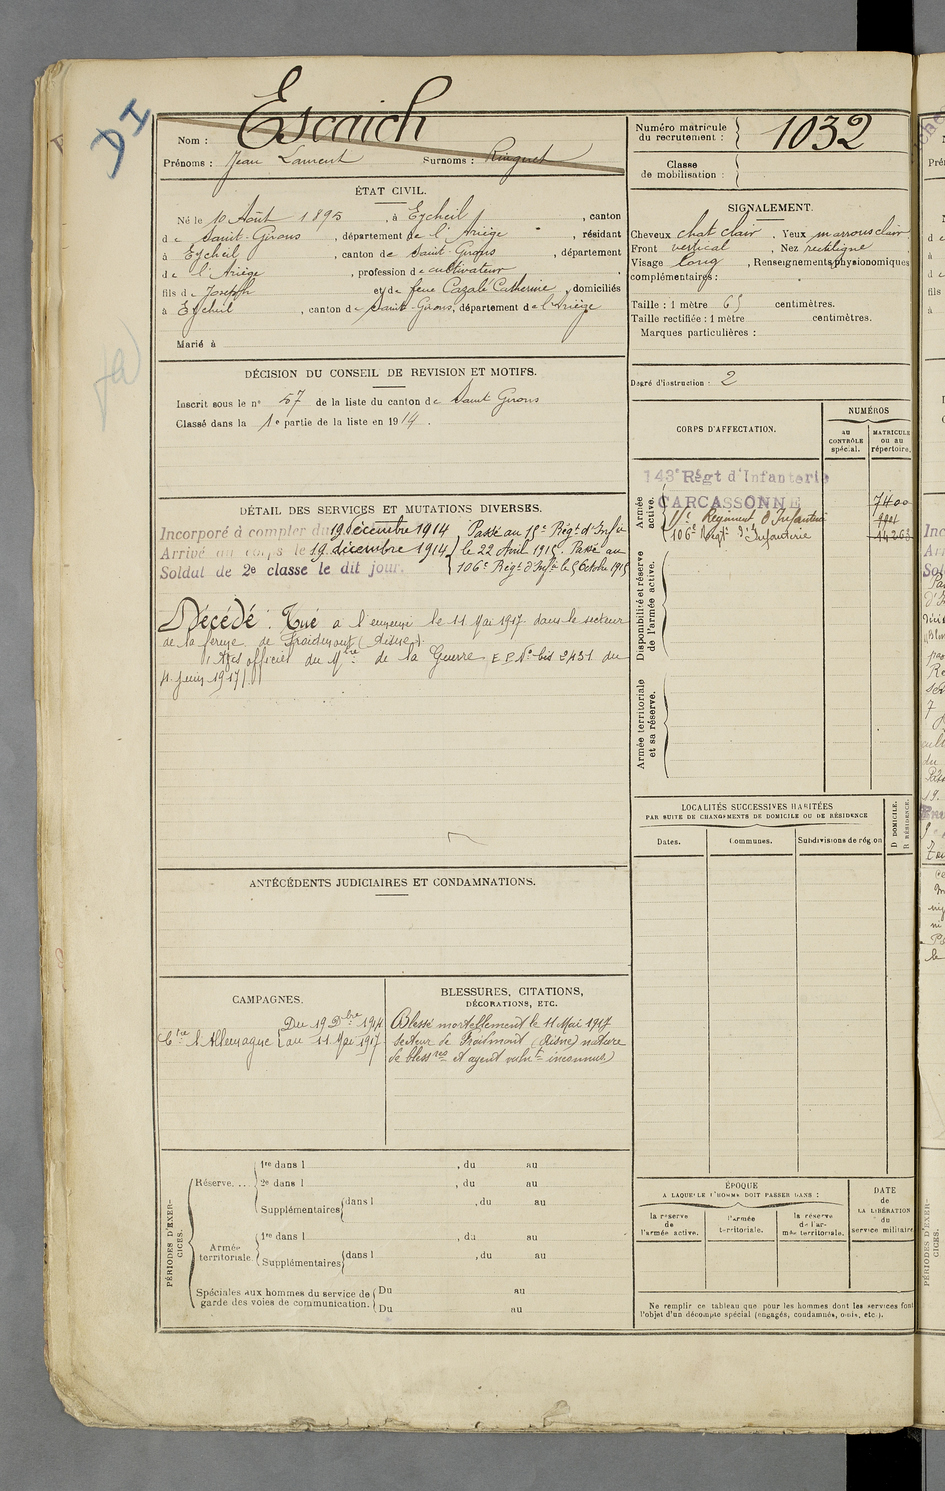 DI
Nom : Escaich
Prénoms : Jean Laurent Surnoms : Ringuet
Numéro matricule du recrutement : 1032
Classe de mobilisation :
ÉTAT CIVIL.
Né le 10 Août 1895, à Eycheil, canton
de Saint-Girons, département de l'Ariège, résidant
à Eycheil, canton de Saint-Girons, département
de l'Ariège, profession de cultivateur
fils de Joseph et de feue Cazalé Catherine, domiciliés
à Eycheil, canton de Saint-Girons, département de l'Ariège
Marié à
SIGNALEMENT.
Cheveux chat clair. Yeux marrons clair
Front vertical. Nez rectiligne
Visage long, Renseignements physionomiques
complémentaires :
Taille : 1 mètre 65 centimètres.
Taille rectifiée : 1 mètre centimètres.
Marques particulières :
Degré d'instruction : 2
DÉCISION DU CONSEIL DE REVISION ET MOTIFS.
Inscrit sous le n° 57 de la liste du canton de Saint Girons
Classé dans la 1e partie de la liste en 1914.
DÉTAIL DES SERVICES ET MUTATIONS DIVERSES.
Incorporé à compter du 19 décembre 1914
Arrivé au corps le 19 décembre 1914
Soldat de 2e classe le dit jour.
Passé au 15e Régt d'Infie
le 22 Avril 1915. Passé au
106e Régt d'Infie le 5 Octobre 1915
Décédé : Tué à l'ennemi le 11 Mai 1917 dans le secteur
de la ferme de Froidmont (Aisne).
(Avis officiel du Mtre de la Guerre E P N° bis 2431 du
4 Juin 1917)
CORPS D'AFFECTATION.
NUMÉROS
AU CONTRÔLE spécial.
MATRICULE ou au répertoire.
Armée active.
143e Régt d'Infanterie
CARCASSONNE 7400
15e Régiment d'Infanterie
106e Régt d'Infanterie
Disponibilité et réserve de l'armée active.
Armée territoriale et sa réserve.
LOCALITÉS SUCCESSIVES HABITÉES
PAR SUITE DE CHANGEMENTS DE DOMICILE OU DE RÉSIDENCE
Dates. Communes. Subdivisions de région
D DOMICILE.
R RÉSIDENCE.
ANTÉCÉDENTS JUDICIAIRES ET CONDAMNATIONS.
CAMPAGNES.
Ctre l'Allemagne
Du 19 Dbre 1914
au 11 Mai 1917
BLESSURES, CITATIONS,
DÉCORATIONS, ETC.
Blessé mortellement le 11 Mai 1917
secteur de Froidmont (Aisne) nature
de blessres et agent vulnt inconnus)
PÉRIODES D'EXERCICES.
Réserve...
1re dans l , du au
2e dans l , du au
Supplémentaires dans l , du au
Armée territoriale
1re dans l , du au
Supplémentaires dans l , du au
Spéciales aux hommes du service de garde des voies de communication.
Du au
Du au
ÉPOQUE
A LAQUELLE L'HOMME DOIT PASSER DANS :
la réserve de l'armée active.
l'armée territoriale.
la réserve de l'armée territoriale.
DATE de LA LIBÉRATION du service militaire
Ne remplir ce tableau que pour les hommes dont les services font
l'objet d'un décompte spécial (engagés, condamnés, omis, etc.).